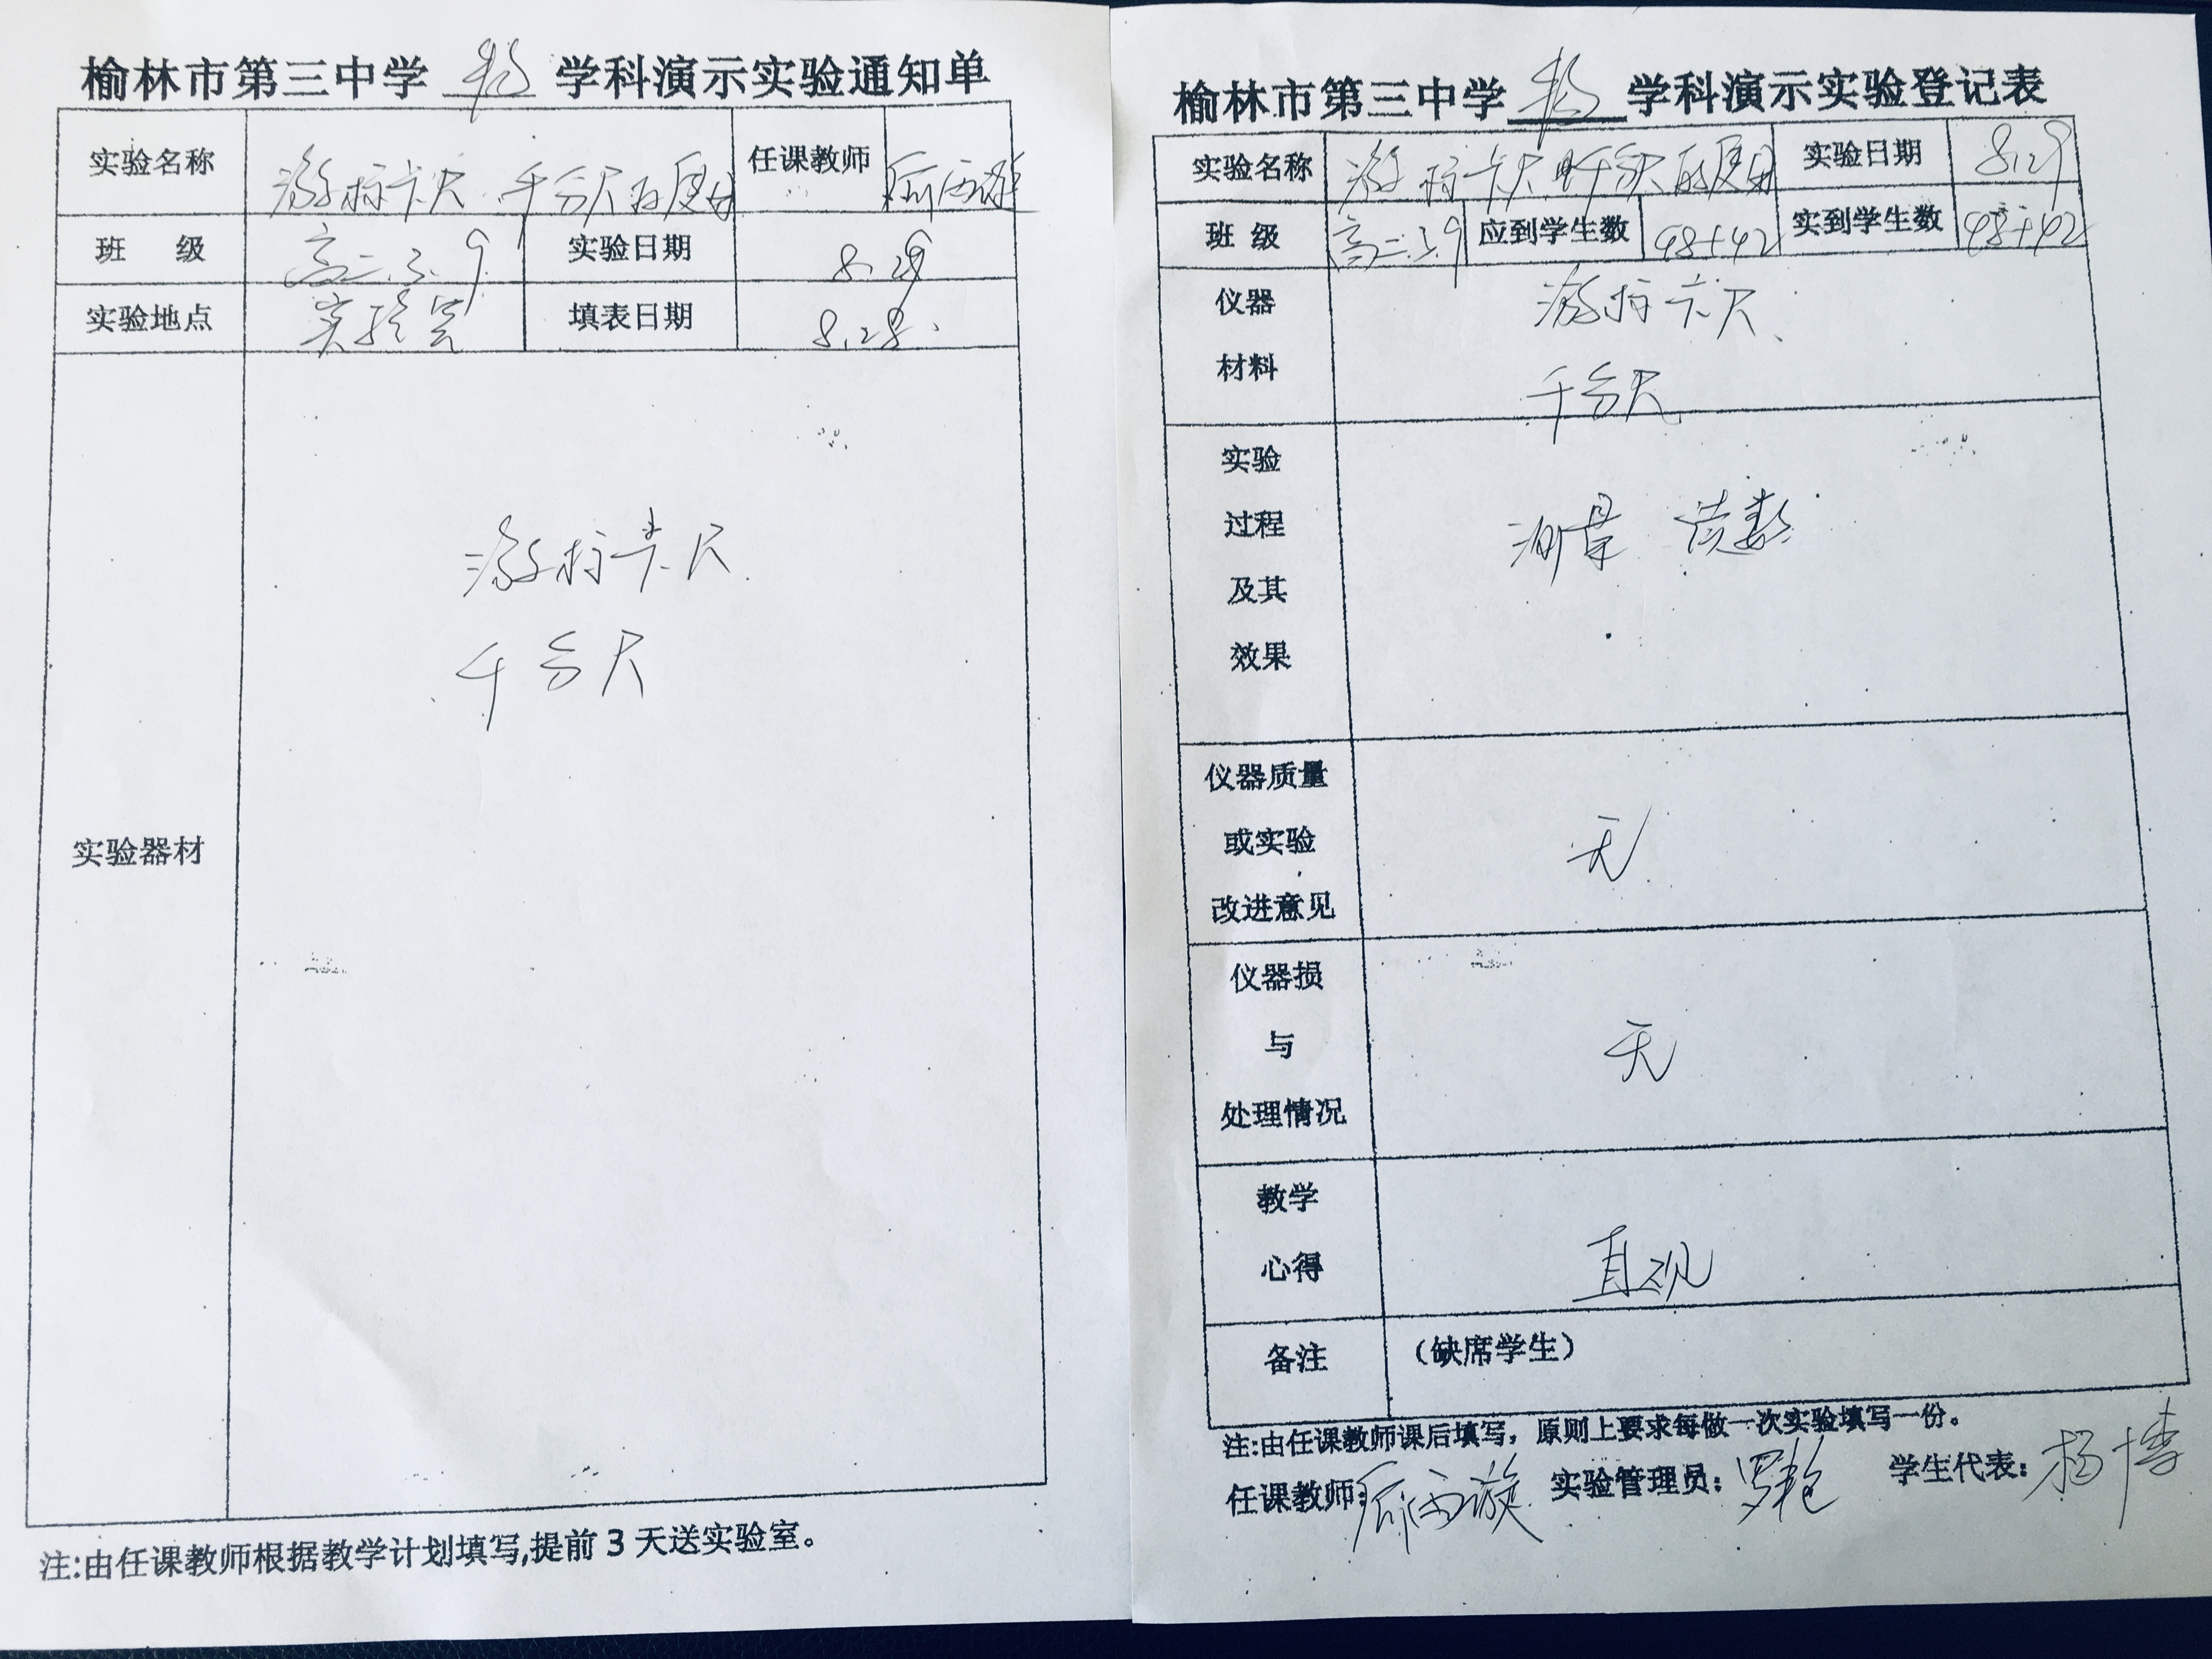 榆林市第三中学 物 学科演示实验通知单
实验名称 游标卡尺 千分尺的使用 任课教师
班 级 高二.3.9 实验日期 8.29
实验地点 实验室 填表日期 8.28.
实验器材
游标卡尺
千分尺
注:由任课教师根据教学计划填写,提前 3 天送实验室。
榆林市第三中学 物 学科演示实验登记表
实验名称 游标卡尺 千分尺的使用 实验日期 8.29
班 级 高二.3.9 应到学生数 48+42 实到学生数 48+42
仪器
材料
游标卡尺、
千分尺
实验
过程
及其
效果
测量 读数
仪器质量
或实验
改进意见
无
仪器损
与
处理情况
无
教学
心得
直观
备注 （缺席学生）
注:由任课教师课后填写，原则上要求每做一次实验填写一份。
任课教师: 实验管理员: 学生代表: 杨博